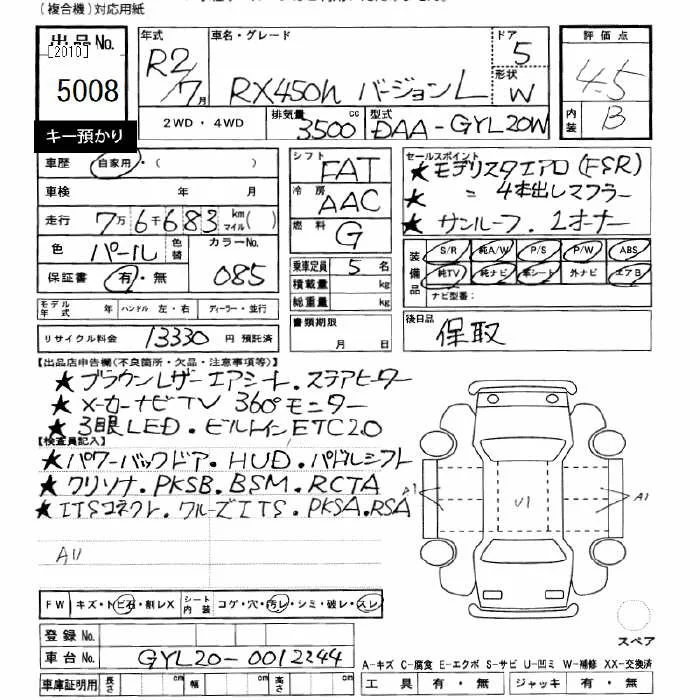 (複合機)対応用紙
出品No.
[2010]
5008
キー預かり
年式 R2/7月
車名・グレード RX450h バージョンL
ドア 5
形状 W
評価点 4.5
内装 B
2WD・4WD
排気量 3500 cc
型式 DAA-GYL20W
車歴 自家用・( )
車検 年 月
走行 7万6千683 km マイル( )
色 パール 色替 カラーNo. 085
保証書 有・無
モデル年式 年 ハンドル 左・右 ディーラー・並行
リサイクル料金 13330円 預託済
シフト FAT
冷房 AAC
燃料 G
乗車定員 5名
積載量 kg
総重量 kg
書類期限 月 日
セールスポイント
★モデリスタエアロ(FSR)
★ 〃 4本出しマフラー
★サンルーフ.1オーナー
装備品 S/R 純A/W P/S P/W ABS
純TV 純ナビ 革シート 外ナビ エアB
ナビ型番:
後日品 保取
【出品店申告欄(不良箇所・欠品・注意事項等)】
★ブラウンレザーエアシート.ステアヒーター
★メーカーナビTV 360°モニター
★3眼LED.ビルトインETC2.0
【検査員記入】
★パワーバックドア.HUD.パドルシフト
★クリソナ.PKSB.BSM.RCTA
★ITSコネクト.クルーズITS.PKSA.RSA
A11
A1 U1 A1
FW キズ・トビ石・割レX シート内装 コゲ・穴・汚レ・シミ・破レ・スレ
スペア
登録No.
車台No. GYL20-0012344
車庫証明用 長さ cm 幅 cm 高さ cm
A-キズ C-腐食 E-エクボ S-サビ U-凹ミ W-補修 XX-交換済
工具 有・無 ジャッキ 有・無